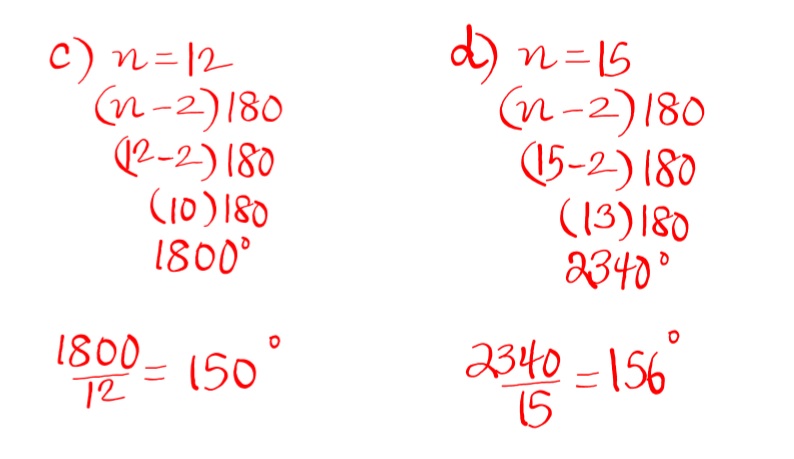 c) n=12
(n-2)180
(12-2)180
(10)180
1800°
1800/12 = 150°
d) n=15
(n-2)180
(15-2)180
(13)180
2340°
2340/15 = 156°